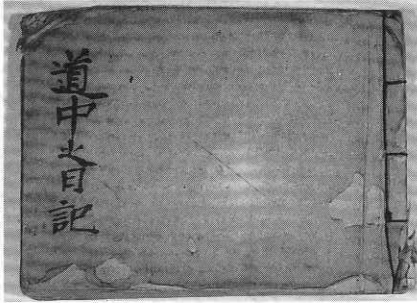 道中之日記